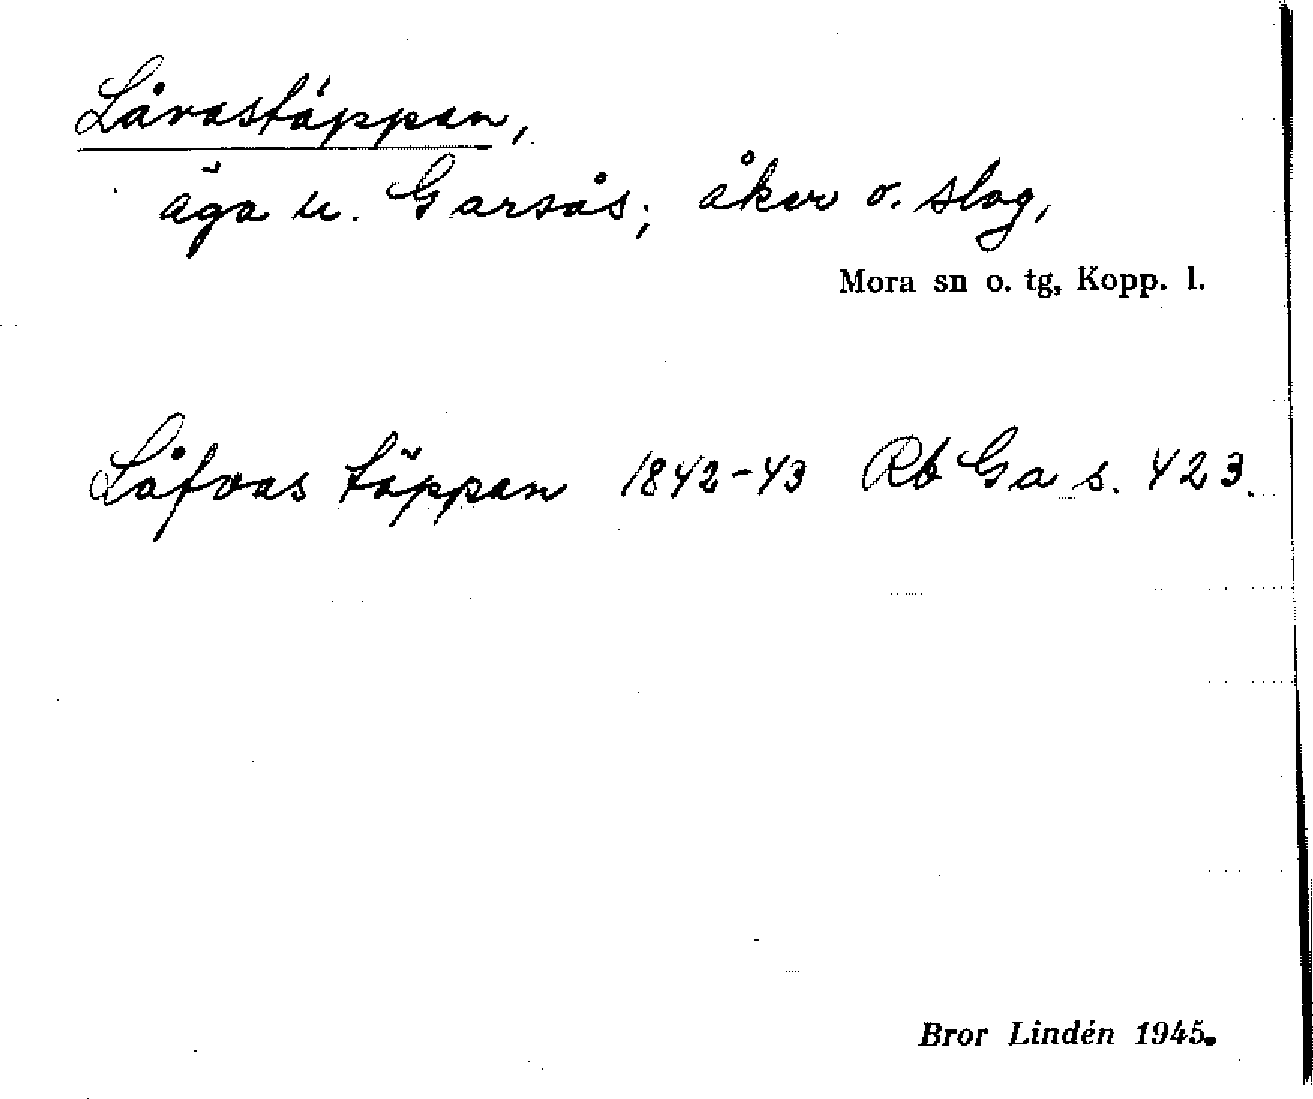 Låvastäppan,
äga u. Garsås; åker o. slog,
Mora sn o. tg, Kopp. l.
Låfvas täppan 1842-43 Rb Ga s. 423.
Bror Lindén 1945.